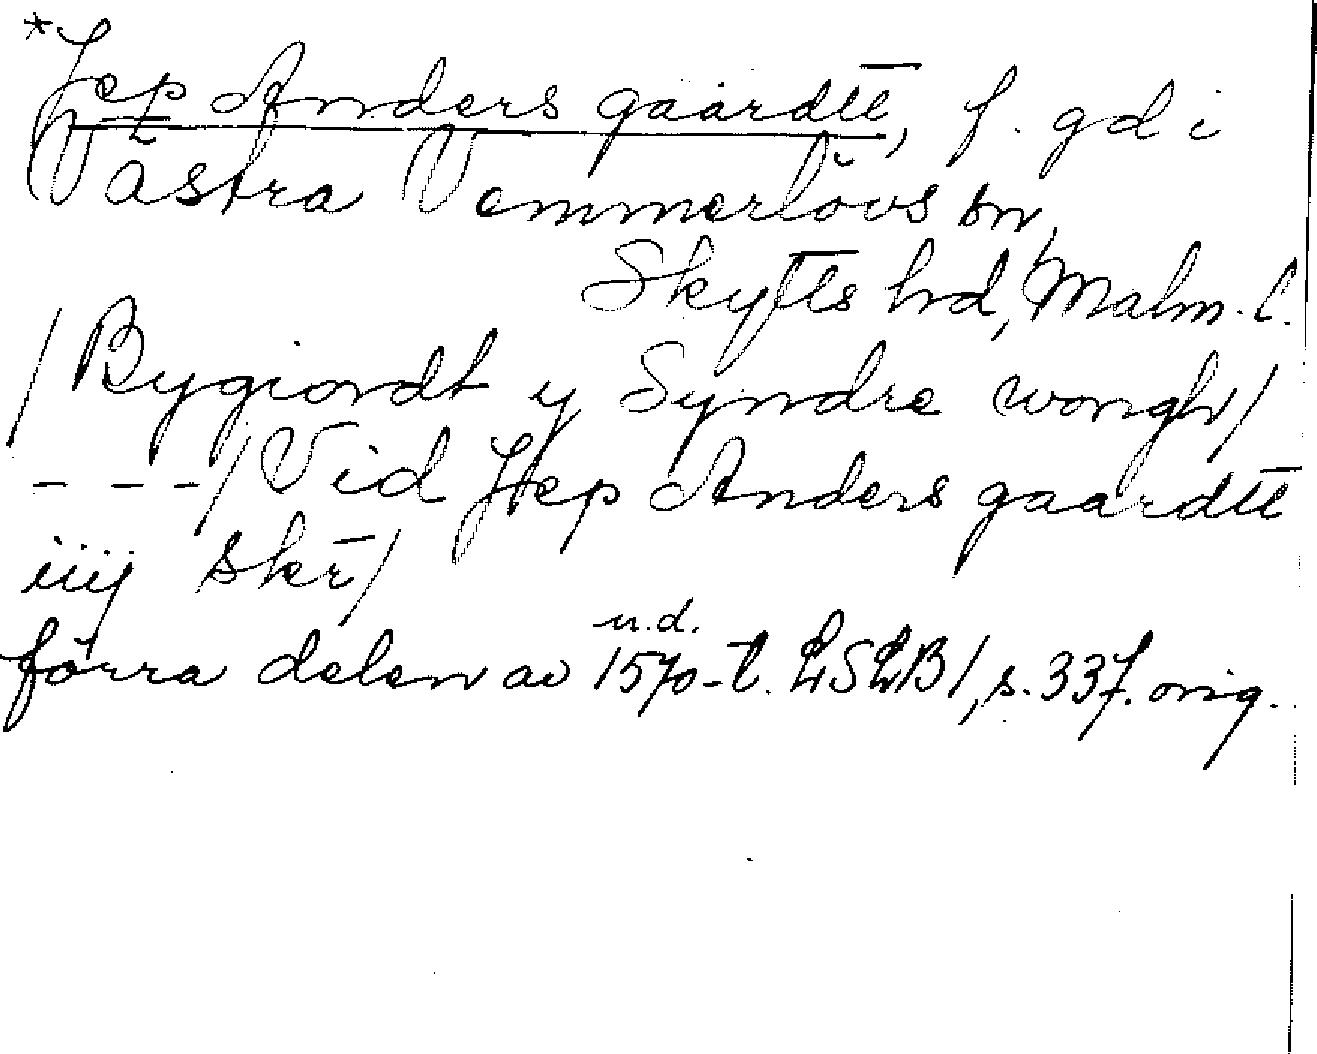 *Jep Anders gaardtē, f. gd i
Västra Vemmerlövs sn,
Skytts hd, Malm. l.
/Bygiordt y Syndre wongh/
- - -/Vid Jep Anders gaardtē
iiij skr̄/
u.d.
förra delen av 1570-t. LSLB1, s. 337. orig.